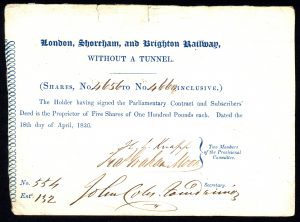 London, Shoreham, and Brighton Railway,
WITHOUT A TUNNEL.
(SHARES, No. 4656 TO No. 4660 INCLUSIVE.)
The Holder having signed the Parliamentary Contract and Subscribers'
Deed is the Proprietor of Five Shares of One Hundred Pounds each. Dated the
18th day of April, 1836.
Knapp
Two Members
of the Provisional
Committee.
No. 554
Secretary.
Ext 132
John Coles